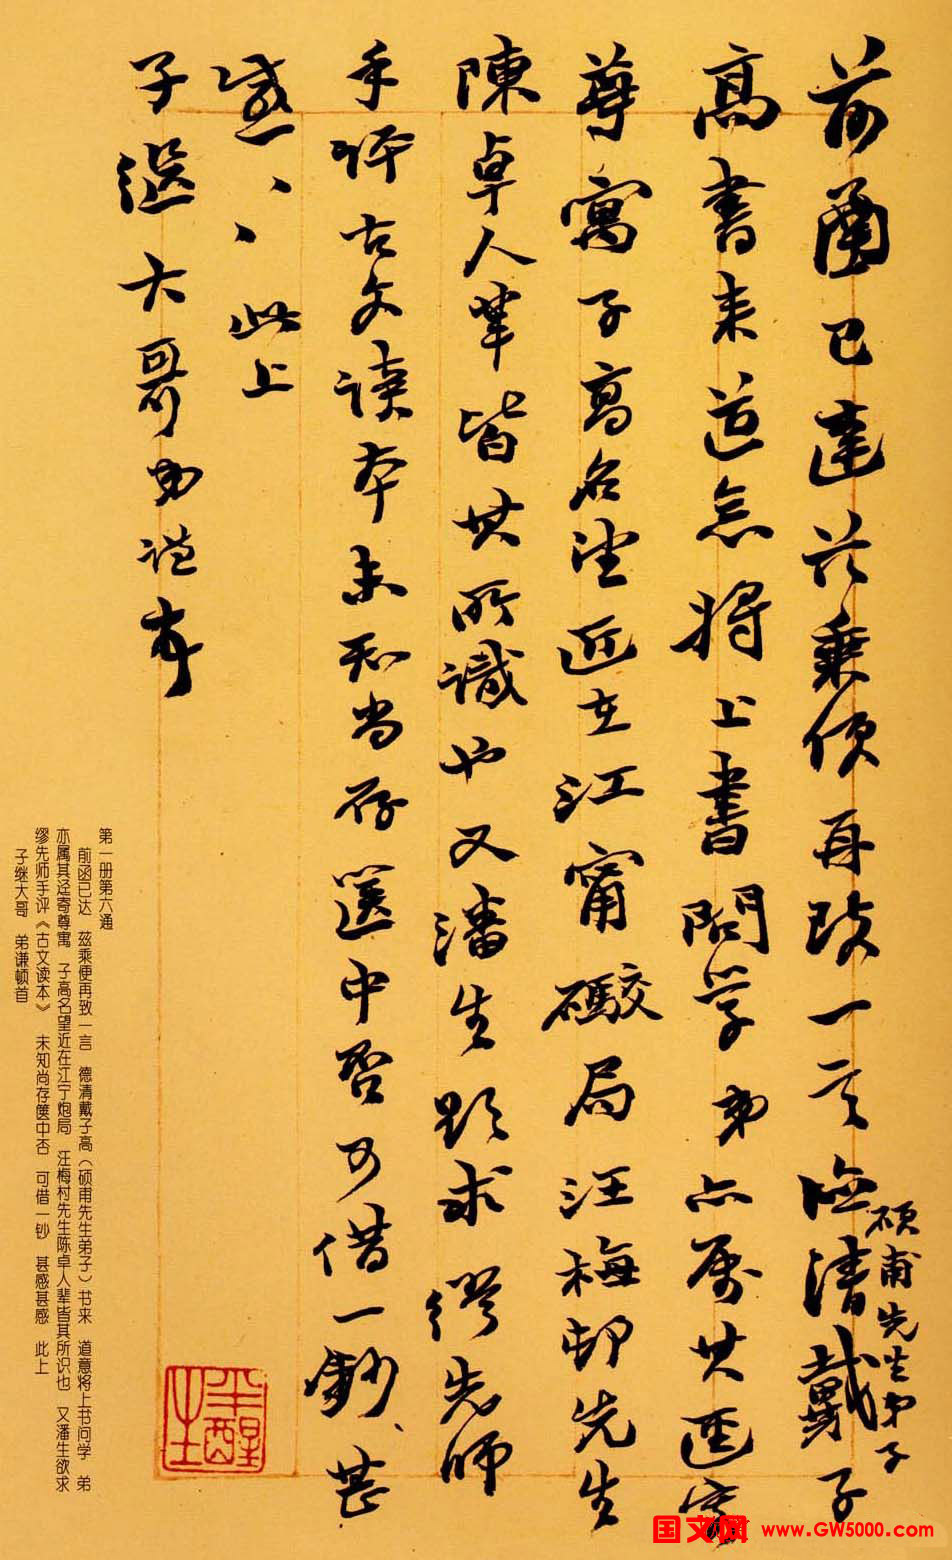 前圅已達茲乘便再致一言德清戴子
碩甫先生弟子
高書来道意將上書問學弟亦屬其迳寄
尊寓子高名望近在江甯礮局汪梅邨先生
陳卓人輩皆其所識也又潘生欲求繆先師
手評古文讀本未知尚存篋中否可借一鈔、甚
感、、此上
子继大哥弟谦頓首
第一册第六通
前函已达 兹乘便再致一言 德清戴子高（硕甫先生弟子）书来 道意将上书问学 弟
亦属其迳寄尊寓 子高名望近在江宁炮局 汪梅村先生陈卓人辈皆其所识也 又潘生欲求
缪先师手评《古文读本》 未知尚存箧中否 可借一钞 甚感甚感 此上
子继大哥 弟谦顿首
国文网 www.GW5000.com